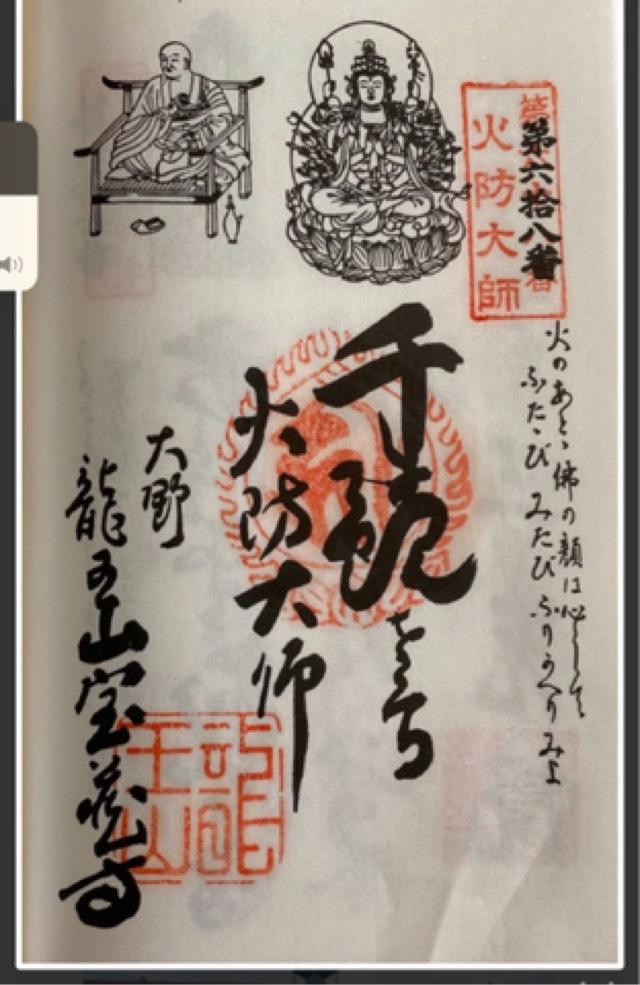 第六拾八番
火防大師
火のあとゝ佛の顔は心して
ふたゝび みたび ふりかへりみよ
千観
火防大師
大野
龍王山宝蔵寺
龍王山